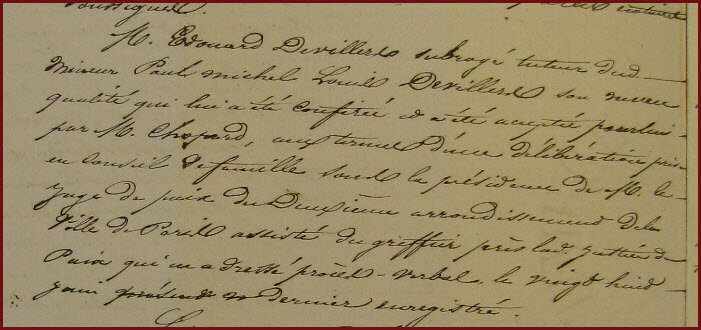 soussignés.
M. Edouard Devillers subrogé tuteur dud.
mineur Paul Michel Louis Devillers son neveu
qualité qui lui a été conférée et a été acceptée pour lui
par M. Chopard, aux termes d'une délibération prise
en Conseil de famille sous la présidence de M. le
Juge de paix du Deuxième arrondissement de la
Ville de Paris assisté du greffier près lad. Justice de
Paix qui en a dressé procès-verbal, le vingt huit
juin dernier enregistré.